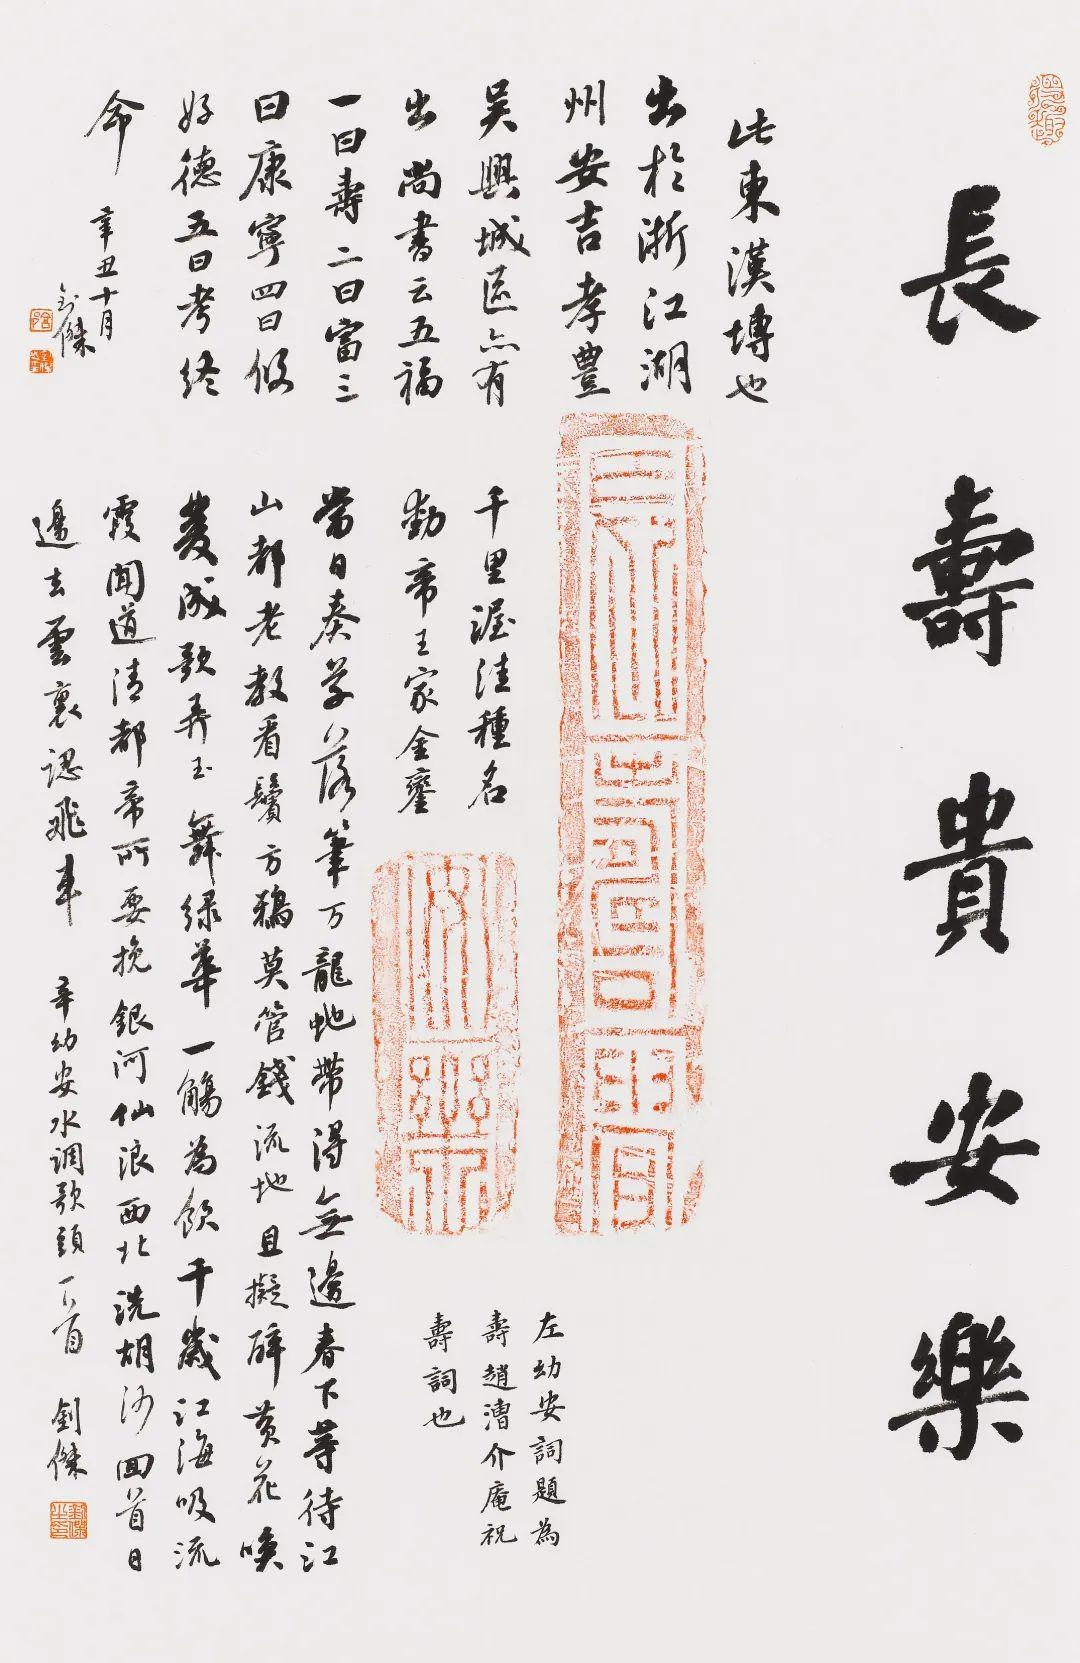 長壽貴安樂
此東漢塼也
出於浙江湖
州安吉孝豐
吴興城區亦有
出尚書云五福
一曰壽二曰富三
曰康寧四曰攸
好德五曰考終
命
辛丑十月
劍傑
千里渥洼種名
動帝王家金鑾
當日奏草落筆万龍虵帶得無邊春下等待江
山都老教看鬢方鴉莫管錢流地且擬醉黄花喚
雙成歌弄玉舞緑華一觴為飲千歲江海吸流
霞聞道清都帝所要挽銀河仙浪西北洗胡沙回首日
邊去雲裏認飛車
辛幼安水調歌頭一首
劍傑
左幼安詞題為
壽趙漕介庵祝
壽詞也
長壽貴
安樂